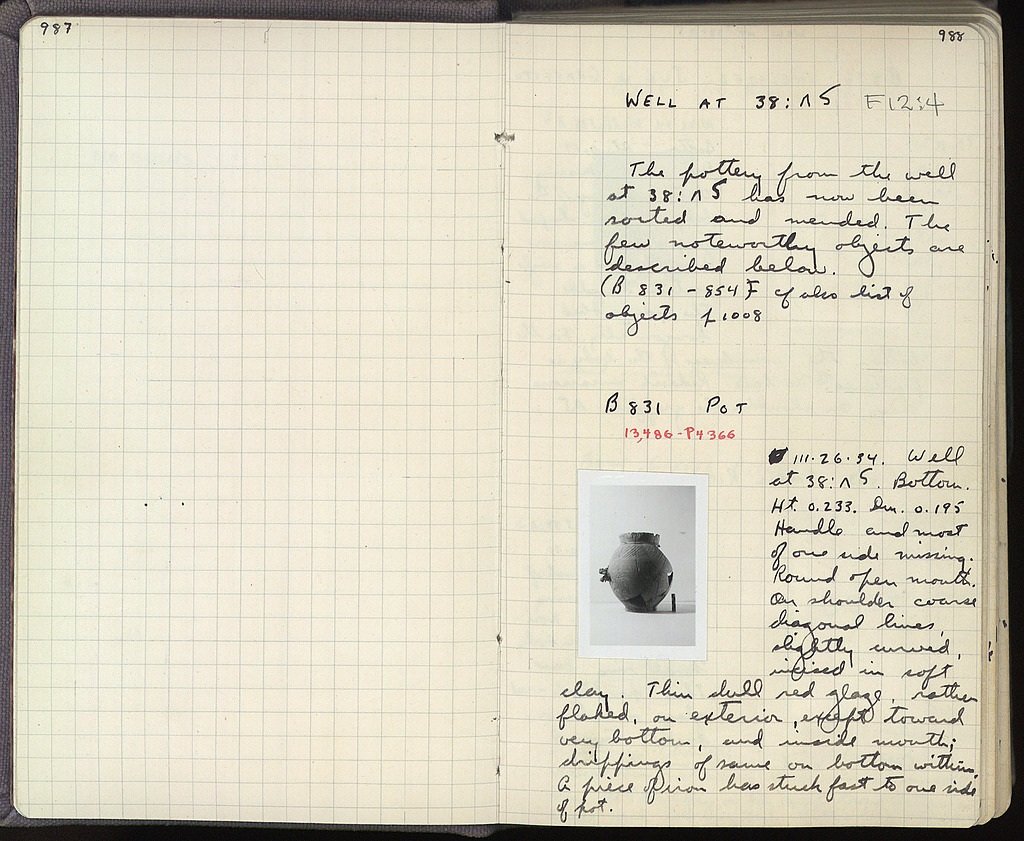 987
988
WELL AT 38:ΛS F12:4
The pottery from the well
at 38:ΛS has now been
sorted and mended. The
few noteworthy objects are
described below.
(B 831 - 854) cf also list of
objects p 1008
B 831 POT
13,486-P4366
III·26·34. Well
at 38:ΛS. Bottom.
Ht. 0.233. Dm. 0.195
Handle and most
of one side missing.
Round open mouth.
On shoulder coarse
diagonal lines,
slightly curved,
incised in soft
clay. Thin dull red glaze, rather
flaked, on exterior, except toward
very bottom, and inside mouth;
drippings of same on bottom within.
A piece of iron has stuck fast to one side
of pot.